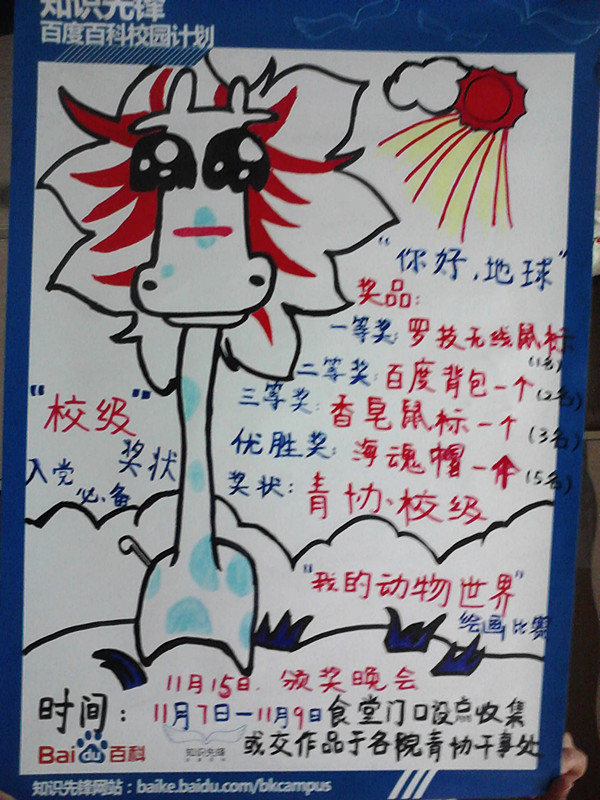 知识先锋
百度百科校园计划
"你好,地球"
奖品:
一等奖:罗技无线鼠标
(1名)
二等奖:百度背包一个
(2名)
三等奖:香皂鼠标一个
(3名)
优胜奖:海魂帽一个
(5名)
奖状:青协、校级
"校级"
奖状
入党
必备
"我的动物世界"
绘画比赛
11月15日.颁奖晚会
时间:11月7日—11月9日食堂门口设点收集
或交作品于各院青协干事处
Bai du 百科
知识先锋
知识先锋网站:baike.baidu.com/bkcampus